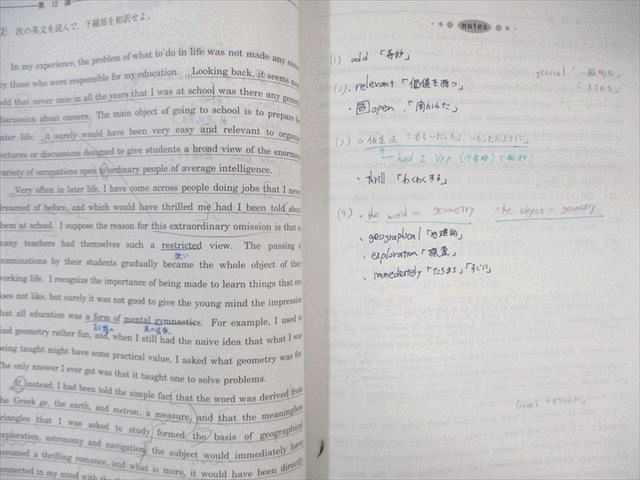 第 12 講
2 次の英文を読んで，下線部を和訳せよ。
In my experience, the problem of what to do in life was not made any
by those who were responsible for my education. Looking back, it seems
odd that never once in all the years that I was at school was there any general
discussion about careers. The main object of going to school is to prepare
later life; it surely would have been very easy and relevant to organize
lectures or discussions designed to give students a broad view of the enormous
variety of occupations open to ordinary people of average intelligence.
Very often in later life, I have come across people doing jobs that I never
dreamed of before, and which would have thrilled me had I been told about
them at school. I suppose the reason for this extraordinary omission is that
many teachers had themselves such a restricted view. The passing of
狭い
examinations by their students gradually became the whole object of their
working life. I recognize the importance of being made to learn things that one
does not like, but surely it was not good to give the young mind the impression
that all education was a form of mental gymnastics. For example, I used to
find geometry rather fun, and, when I still had the naive idea that what I was
being taught might have some practical value, I asked what geometry was for.
The only answer I ever got was that it taught one to solve problems.
If, instead, I had been told the simple fact that the word was derived from
the Greek ge, the earth, and metron, a measure, and that the meaningless
triangles that I was asked to study formed the basis of geographical
exploration, astronomy and navigation, the subject would immediately have
assumed a thrilling romance, and what is more, it would have been directly
connected in my mind with the
notes
(1) odd 「奇妙」
general 「一般的な」
(2). relevant 「価値を持つ」
・open 「開かれた」
(3) ○仮定法
had S Vpp
・thrill 「わくわくする」
(4) ・the word = geometry ・the subject = geometry
・geographical 「地理的」
・exploration 「探査」
・immediately 「ただちに」「すぐに」